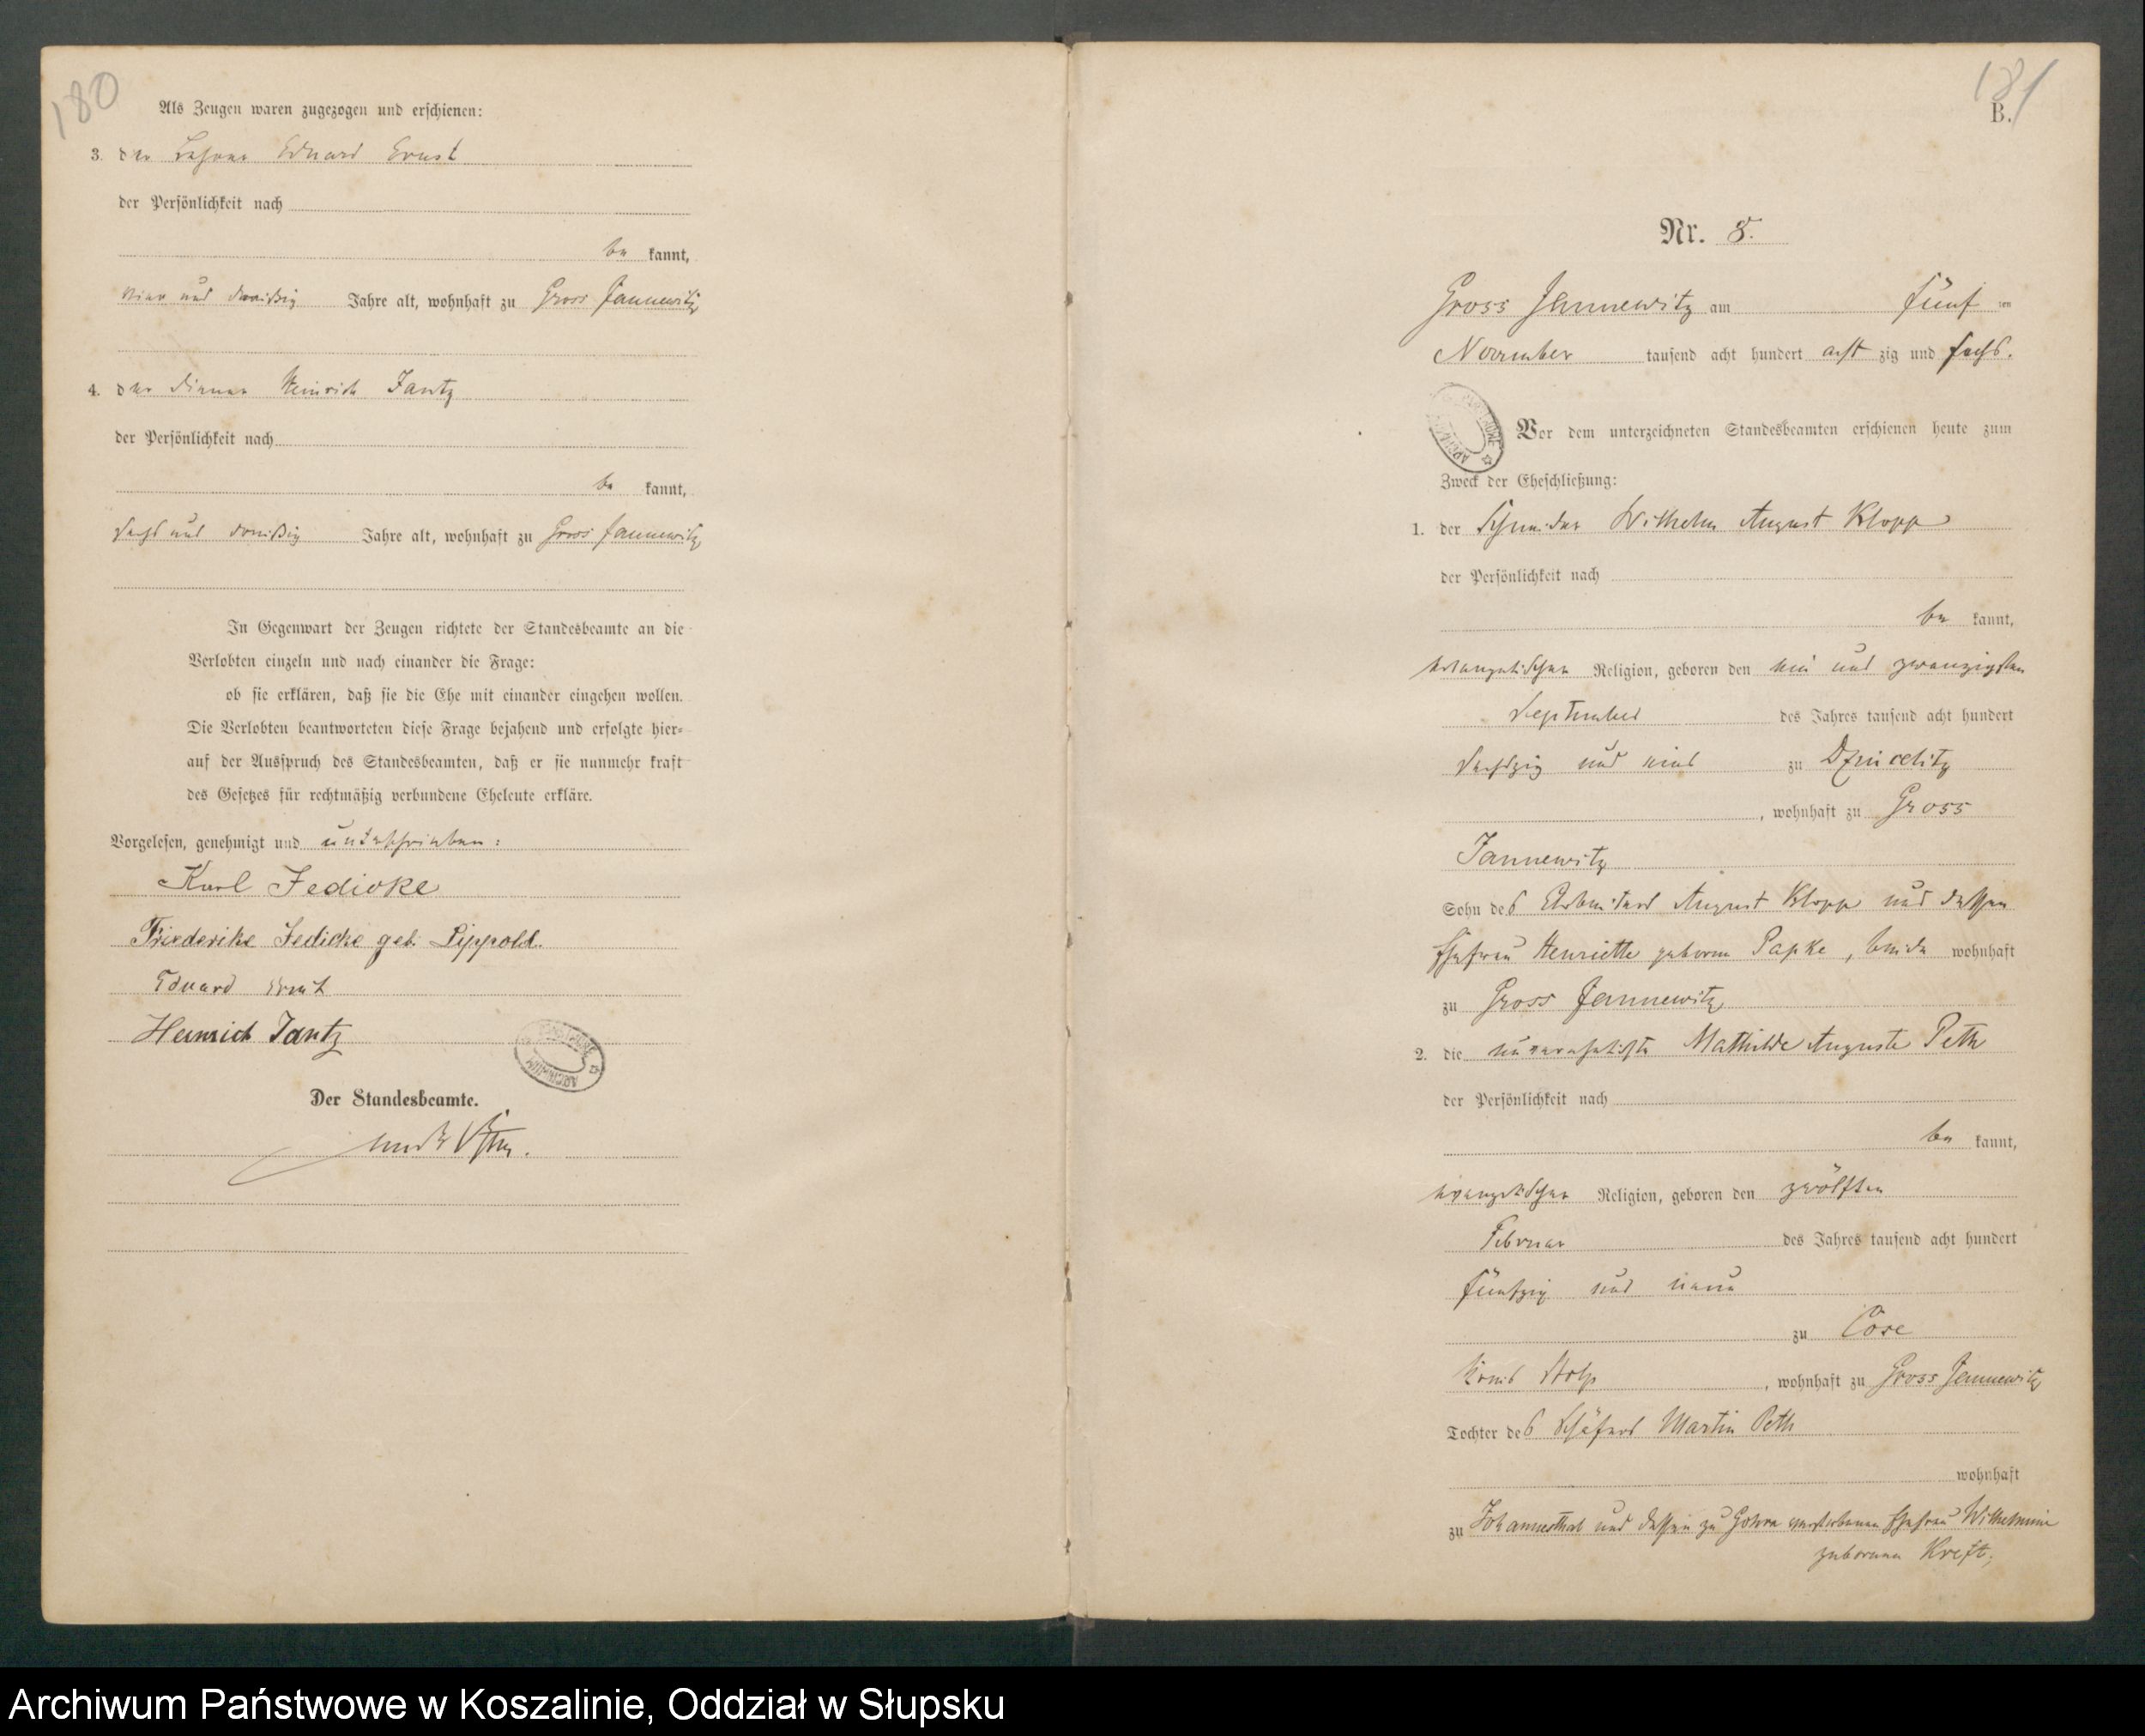 180
Als Zeugen waren zugezogen und erschienen:
3. der Lehrer Eduard Ernst
der Persönlichkeit nach
be kannt,
vier und dreißig Jahre alt, wohnhaft zu Gross Jannewitz
4. der Diener Heinrich Jantz
der Persönlichkeit nach
be kannt,
sechs und dreißig Jahre alt, wohnhaft zu Gross Jannewitz
In Gegenwart der Zeugen richtete der Standesbeamte an die
Verlobten einzeln und nach einander die Frage:
ob sie erklären, daß sie die Ehe mit einander eingehen wollen.
Die Verlobten beantworteten diese Frage bejahend und erfolgte hier=
auf der Ausspruch des Standesbeamten, daß er sie nunmehr kraft
des Gesetzes für rechtmäßig verbundene Eheleute erkläre.
Vorgelesen, genehmigt und unterschrieben:
Karl Jedicke
Friederike Jedicke geb. Lippold.
Eduard Ernst
Heinrich Jantz
Der Standesbeamte.
181
B.
Nr. 8.
Gross Jannewitz am fünf ten
November tausend acht hundert acht zig und sechs.
Vor dem unterzeichneten Standesbeamten erschienen heute zum
Zweck der Eheschließung:
1. der Schneider Wilhelm August Klopp
der Persönlichkeit nach
be kannt,
evangelischer Religion, geboren den ein und zwanzigsten
September des Jahres tausend acht hundert
sechszig und eins zu Dzincelitz
, wohnhaft zu Gross
Jannewitz
Sohn des Arbeiters August Klopp und dessen
Ehefrau Henriette geborne Papke, beide wohnhaft
zu Gross Jannewitz
2. die unverehelichte Mathilde Auguste Peth
der Persönlichkeit nach
be kannt,
evangelischer Religion, geboren den zwölften
Februar des Jahres tausend acht hundert
fünfzig und neun
zu Cose
Kreis Stolp, wohnhaft zu Gross Jannewitz
Tochter des Schäfers Martin Peth
wohnhaft
zu Johannesthal und dessen zu Gohra verstorbenen Ehefrau Wilhelmine
geborenen Kreft;
Archiwum Państwowe w Koszalinie, Oddział w Słupsku